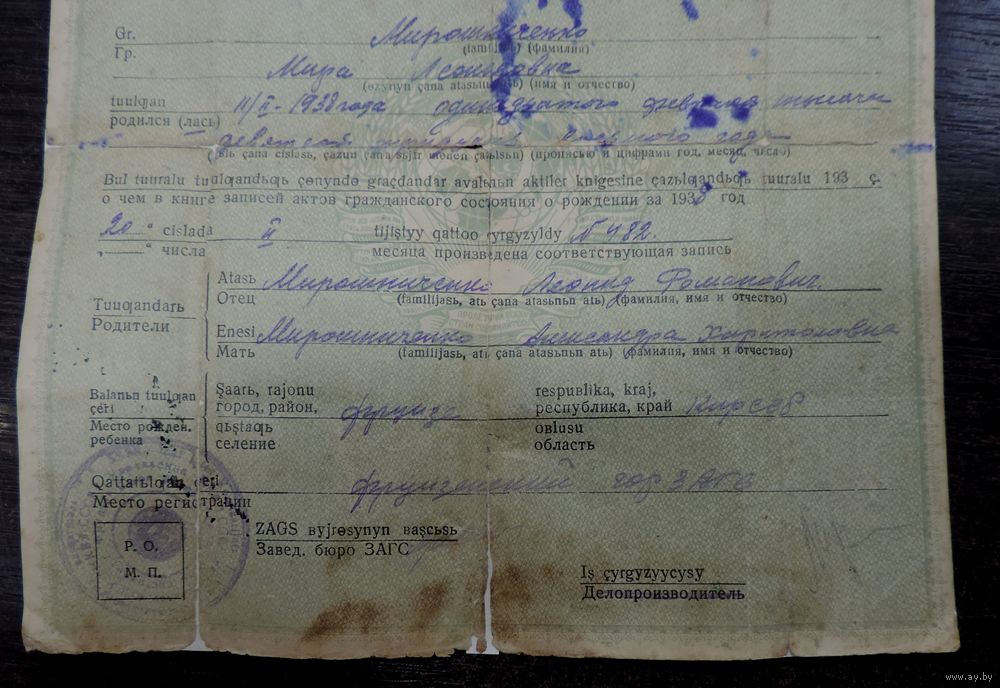 Gr. Мирошниченко
Гр. (familijasь) (фамилия)
Мира Леонидовна
(өzynyn çana atasьnьn atь) (имя и отчество)
tuulƣan 11/II - 1938 года одиннадцатого февраля тысяча
родился (лась)
девятьсот тридцать года
çana cislasь, çazuu çana sьjfr menen çazьlsьn) (прописью и цифрами год, месяц, число)
Bul tuuralu tuulƣandьƣь çөnyndө graçdandar avalьnьn aktiler knigesine çazьlƣandьƣь tuuralu 193 ç.
о чем в книге записей актов гражданского состояния о рождении за 1938 год
20 " cislada II tijiştyy qattoo çyrgyzyldy № 482.
„ " числа месяца произведена соответствующая запись
Atasь Мирошниченко Леонид Романович.
Отец (familijasь, atь çana atasьnьn atь) (фамилия, имя и отчество)
Tuuƣandarь
Родители
Enesi Мирошниченко Александра Харитоновна
Мать (familijasь, atь çana atasьnьn atь) (фамилия, имя и отчество)
Balanьn tuulƣan çeri
Место рожден. ребенка
Şaarь, rajonu respuвlika, kraj,
город, район, Фрунзе республика, край Кирссв
qьştaƣь oвlusu
селение область
Qattalƣan çeri Фрунзенский гор ЗАГС
Место регистрации
ZAGS вyjrosynyn вaşcьsь
Завед. бюро ЗАГС
P. O.
М. П.
Iş çyrgyzyycysy
Делопроизводитель
www.ay.by